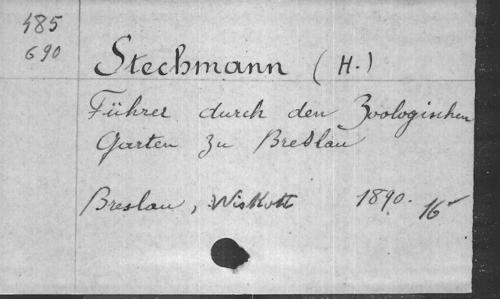 485
690
Stechmann (H.)
Führer durch den Zoologischen
Garten zu Breslau
Breslau, Wiskott 1890. 16°